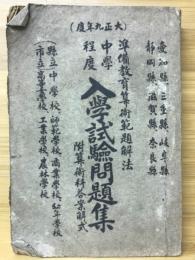 (大正九年度)
愛知縣三重縣岐阜縣
靜岡縣滋賀縣奈良縣
準備教育算術範題解法
中學程度
入學試驗問題集
附算術科答案解式
縣立中學校、師範學校、商業學校、
市立高等女學校、工業學校、農林學校